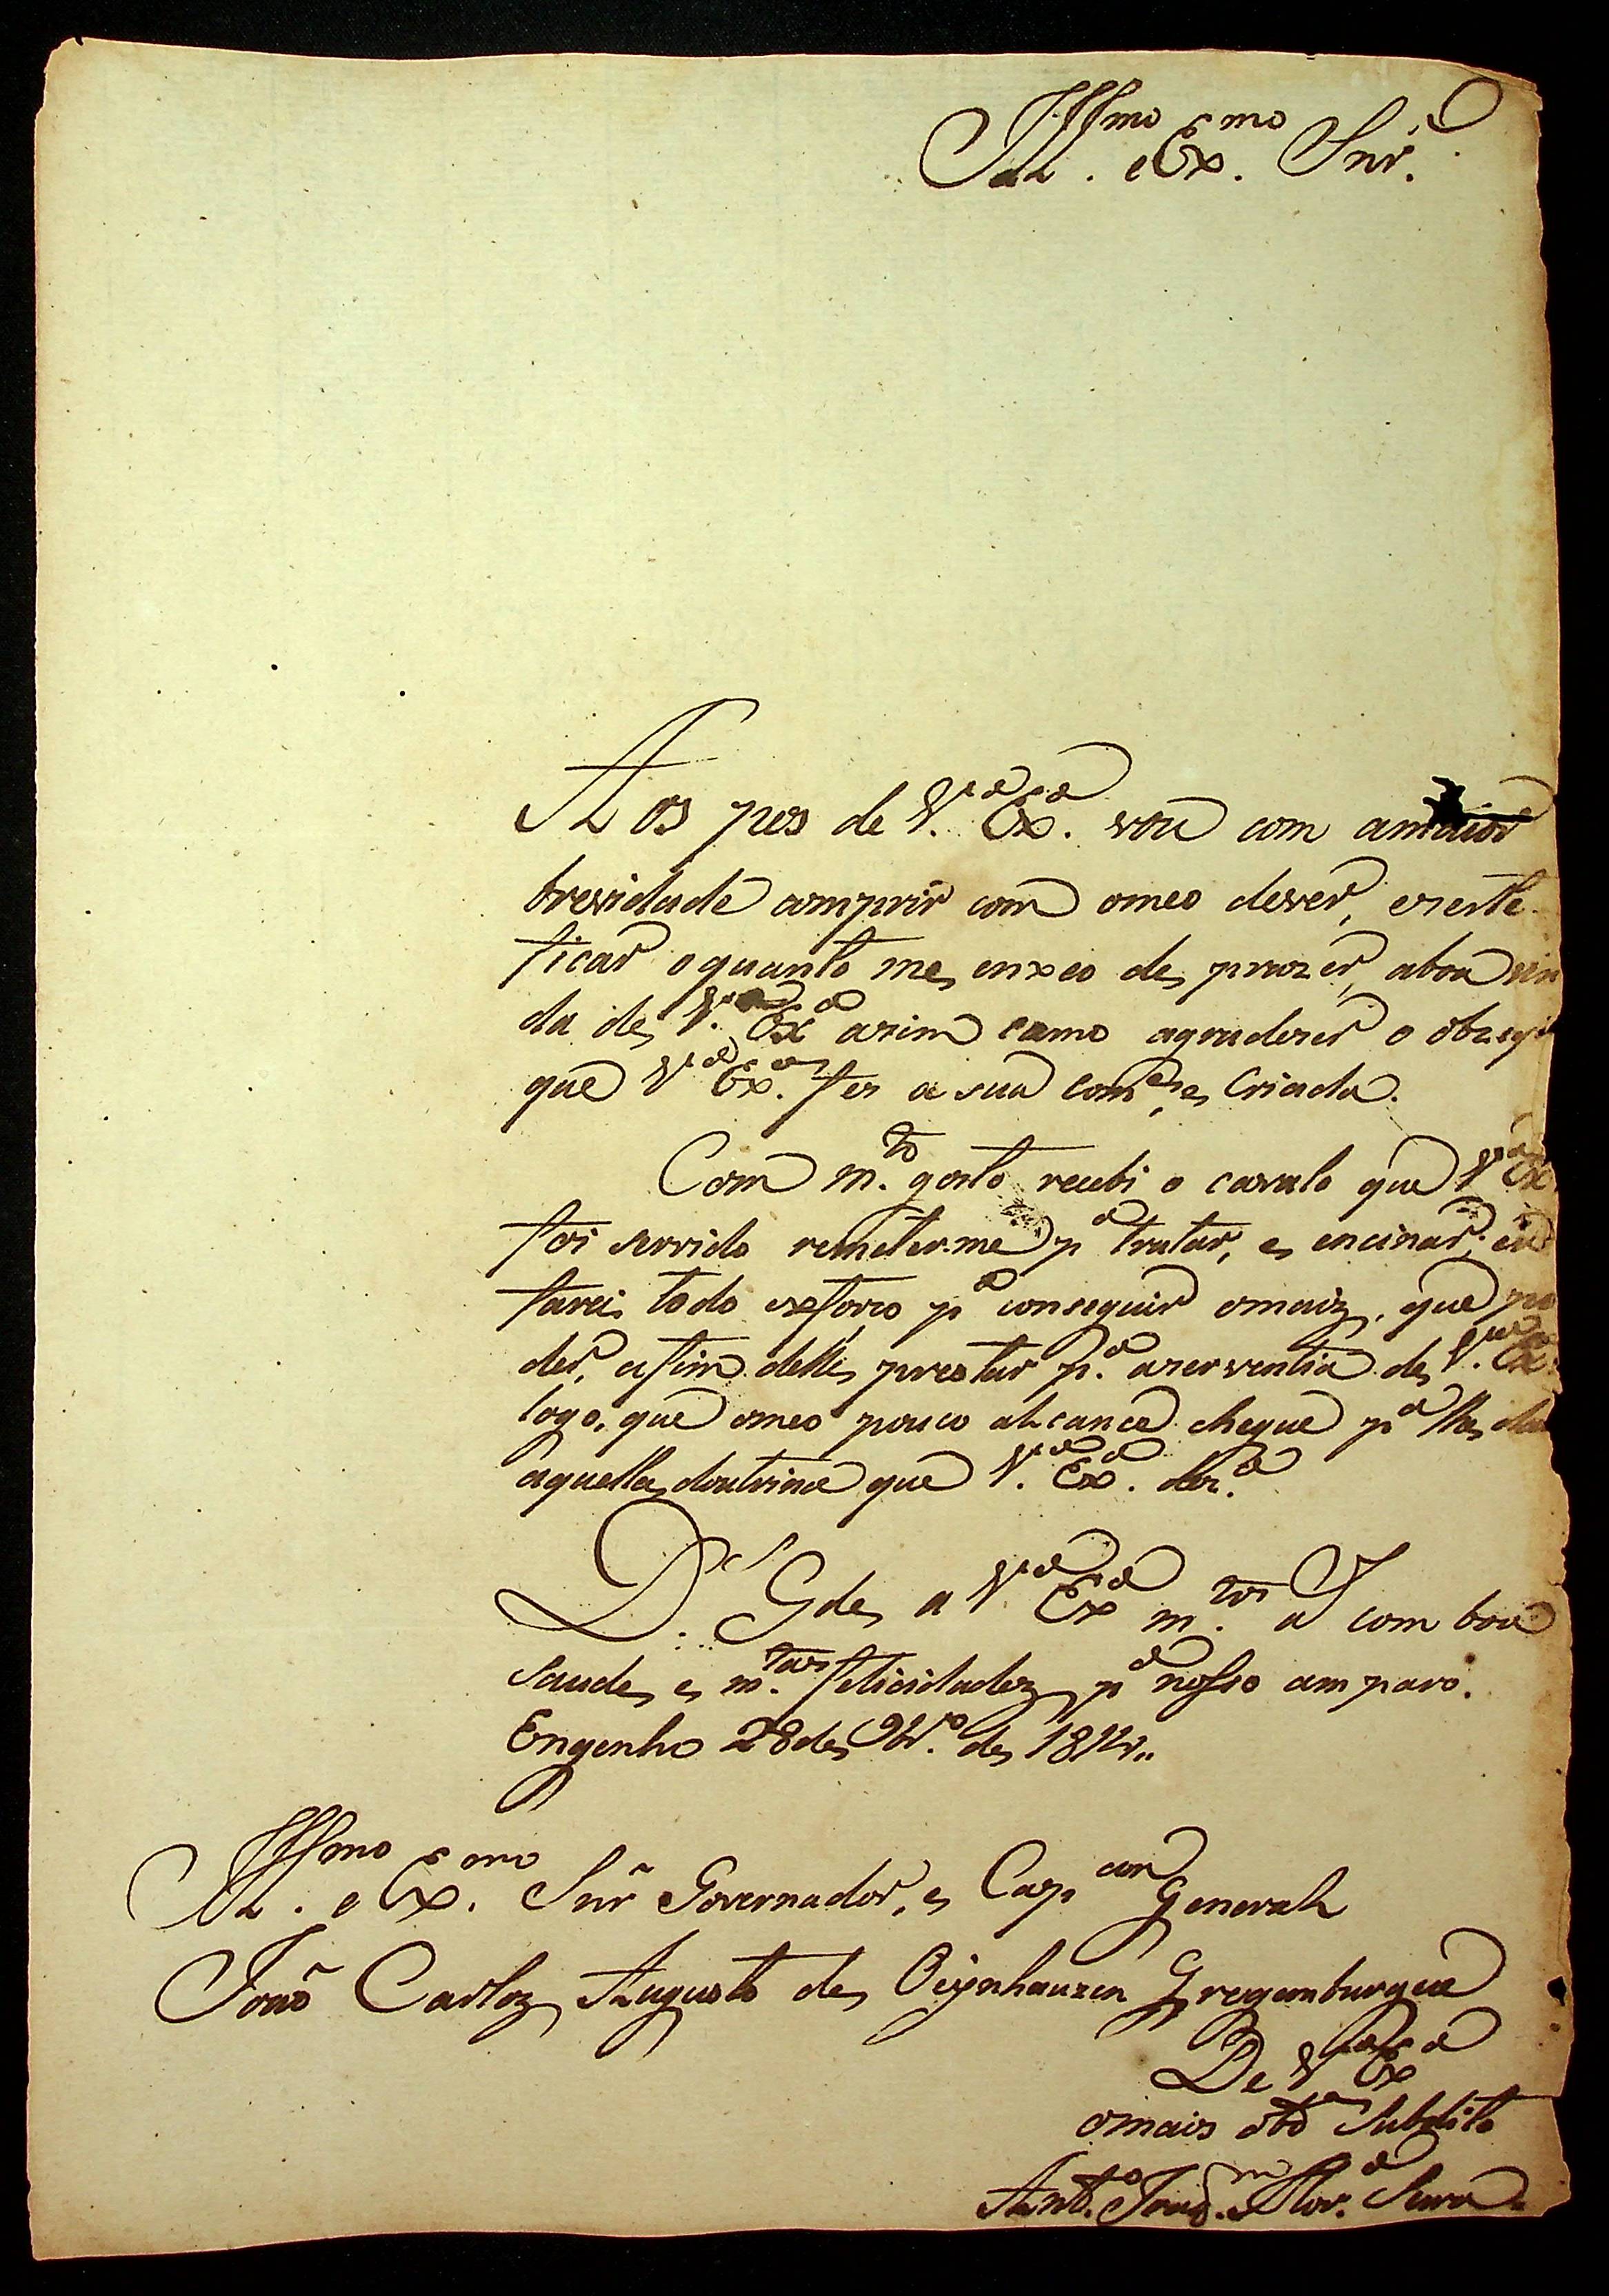 Ill.mo e Ex.mo Snr.
Aos pes de V.a Ex.a vou com amaior
brevidade comprir com omeo dever, e
ficar o quanto me enxeo de prazer, aboa vin
da de V.a Ex.a asim camo agradeser o obzeqi
que V.a Ex.a fes a sua Com.e, e Criada.
Com m.to gosto recebi o cavalo que V.a Ex.
foi servido remeter-me p.a tratar, e encinar,
farei todo exforso p.a conseguir omaiz, que po
der, afim delle prestar p.a aserventia de V.a Ex.a
logo, que omeo pouco alcance chegue p.a lhe dar
aquella doutrina que V.a Ex.a
D.s G.de a V.a Ex.a m.tos a com boa
Saude, e m.tas felicidadez p.a nosso amparo.
Engenho 28 de 9br.o de
Ill.mo e Ex.mo Snr Governador, e Cap.am General
João Carloz Augusto de Oeynhauzen Gregemburgue
De V.a Ex.a
omais Subdito
Ant.o Joaq.m